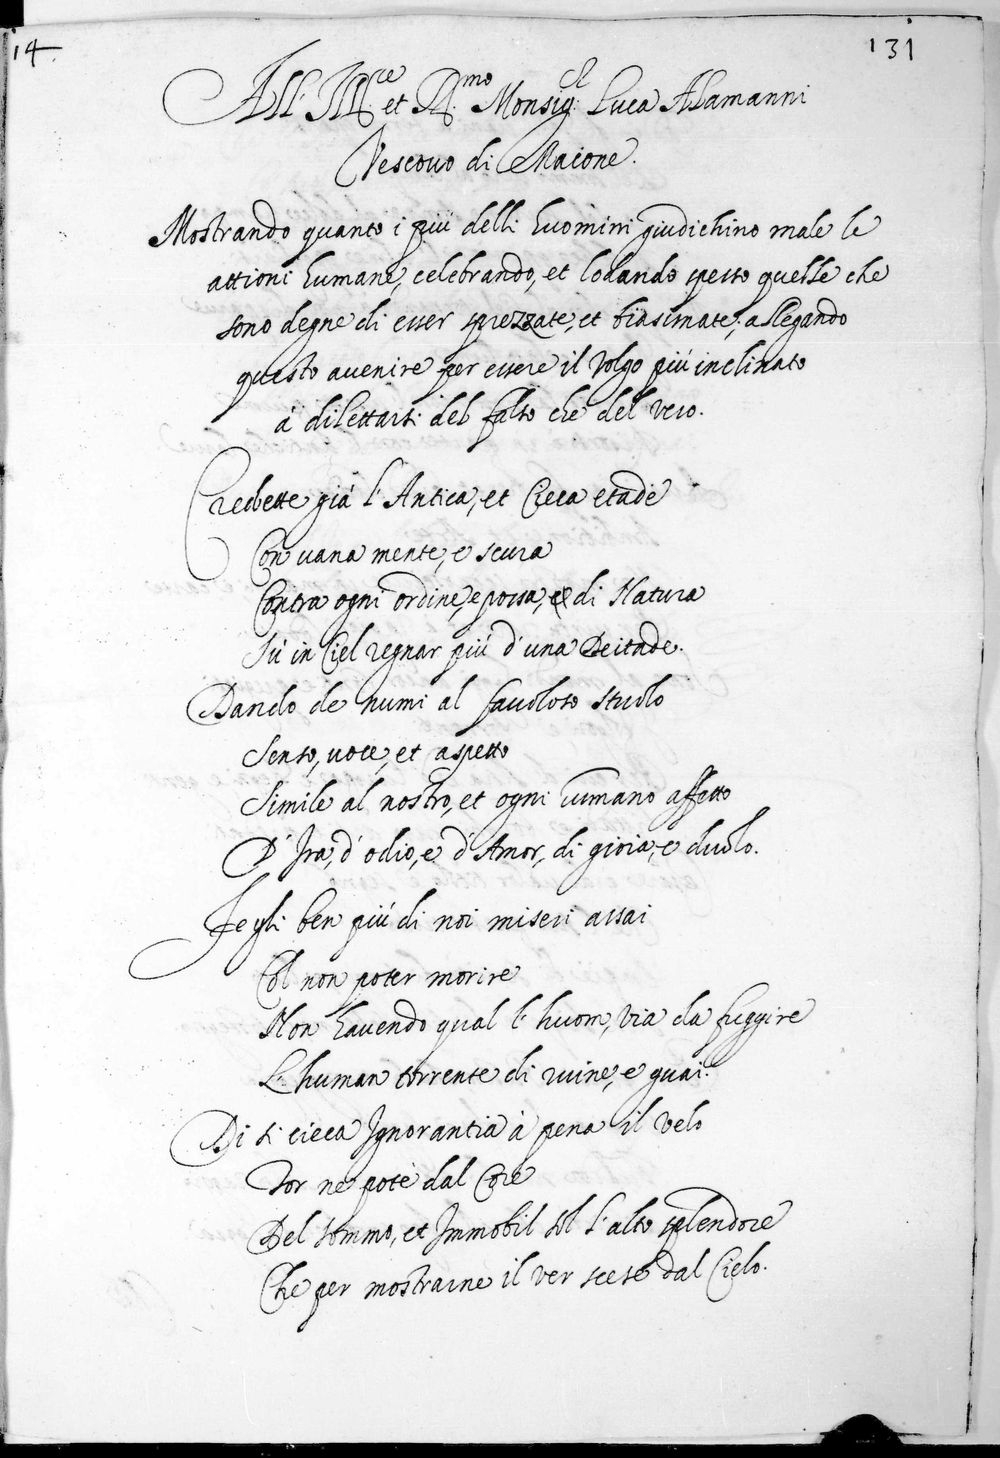 14. 131
All' Ill.ce et R.mo Monsig. Luca Alamanni
Vescouo di Macone.
Mostrando quanto i più delli huomini giudichino male le
attioni humane, celebrando, et lodando spesso quelle che
sono degne di esser sprezzate, et biasimate; allegando
questo auenire per essere il volgo più inclinato
à dilettarsi del falso che del vero.
Credette già l'Antica, et Cieca etade
Con uana mente, e scura
Contra ogni ordine, e possa, di Natura
Sù in Ciel regnar più d'una Deitade.
Dando de numi al fauoloso stuolo
Senso, uoce, et aspetto
Simile al nostro, et ogni humano affetto
D'Ira, d'odio, e d'Amor, di gioia, e duolo.
Fegli ben più di noi miseri assai
Col non poter morire
Non hauendo qual l'huom, via da fuggire
L'human torrente di ruine, e guai.
Di sì cieca Ignorantia à pena il velo
Tor ne potè dal Core
Del sommo, et Immobil sol l'alto splendore
Che per mostrarne il ver scese dal Cielo.